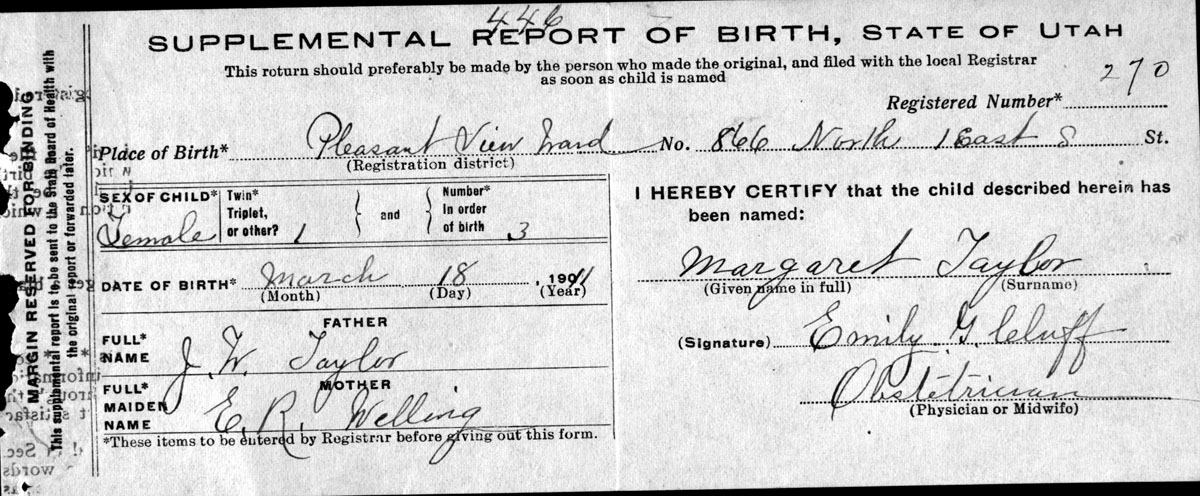 446
SUPPLEMENTAL REPORT OF BIRTH, STATE OF UTAH
This return should preferably be made by the person who made the original, and filed with the local Registrar
as soon as child is named
270
Registered Number*
Place of Birth* Pleasant View Ward No. 866 North 1 East S St.
(Registration district)
SEX OF CHILD* Female
Twin* Triplet, or other? 1
and
Number* In order of birth 3
DATE OF BIRTH* March 18, 1911
(Month) (Day) (Year)
FATHER
FULL* NAME J. W. Taylor
MOTHER
FULL* MAIDEN NAME E. R. Welling
*These items to be entered by Registrar before giving out this form.
I HEREBY CERTIFY that the child described herein has
been named:
Margaret Taylor
(Given name in full) (Surname)
(Signature) Emily G. Cluff
Obstetrician
(Physician or Midwife)
MARGIN RESERVED FOR BINDING
This supplemental report is to be sent to the State Board of Health with
the original report or forwarded later.